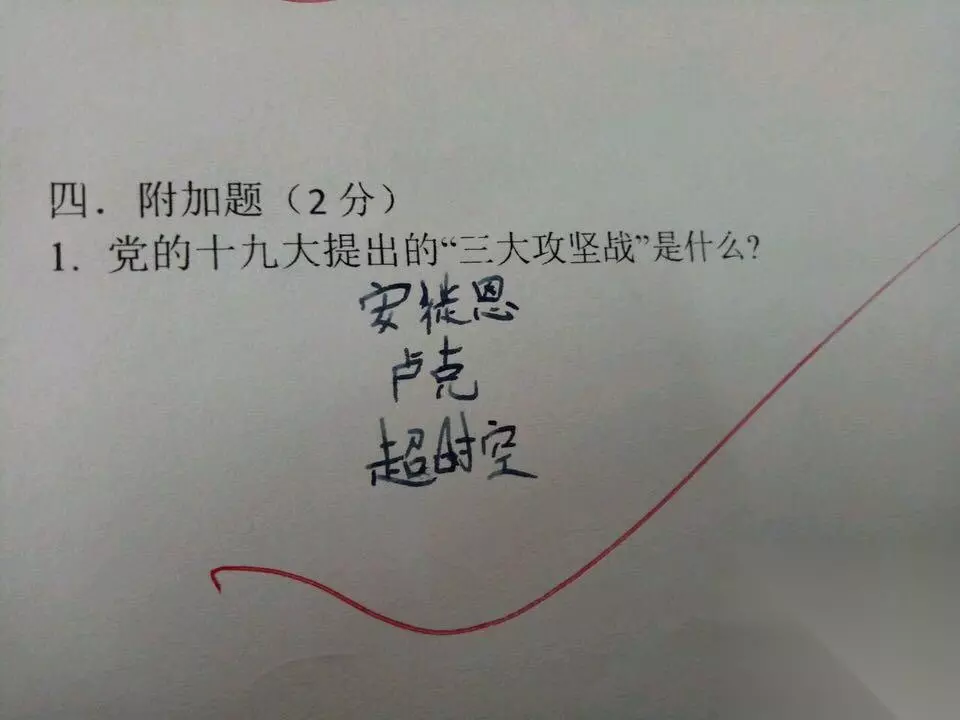 四. 附加题（2 分）
1. 党的十九大提出的“三大攻坚战”是什么?
安徒恩
卢克
超时空